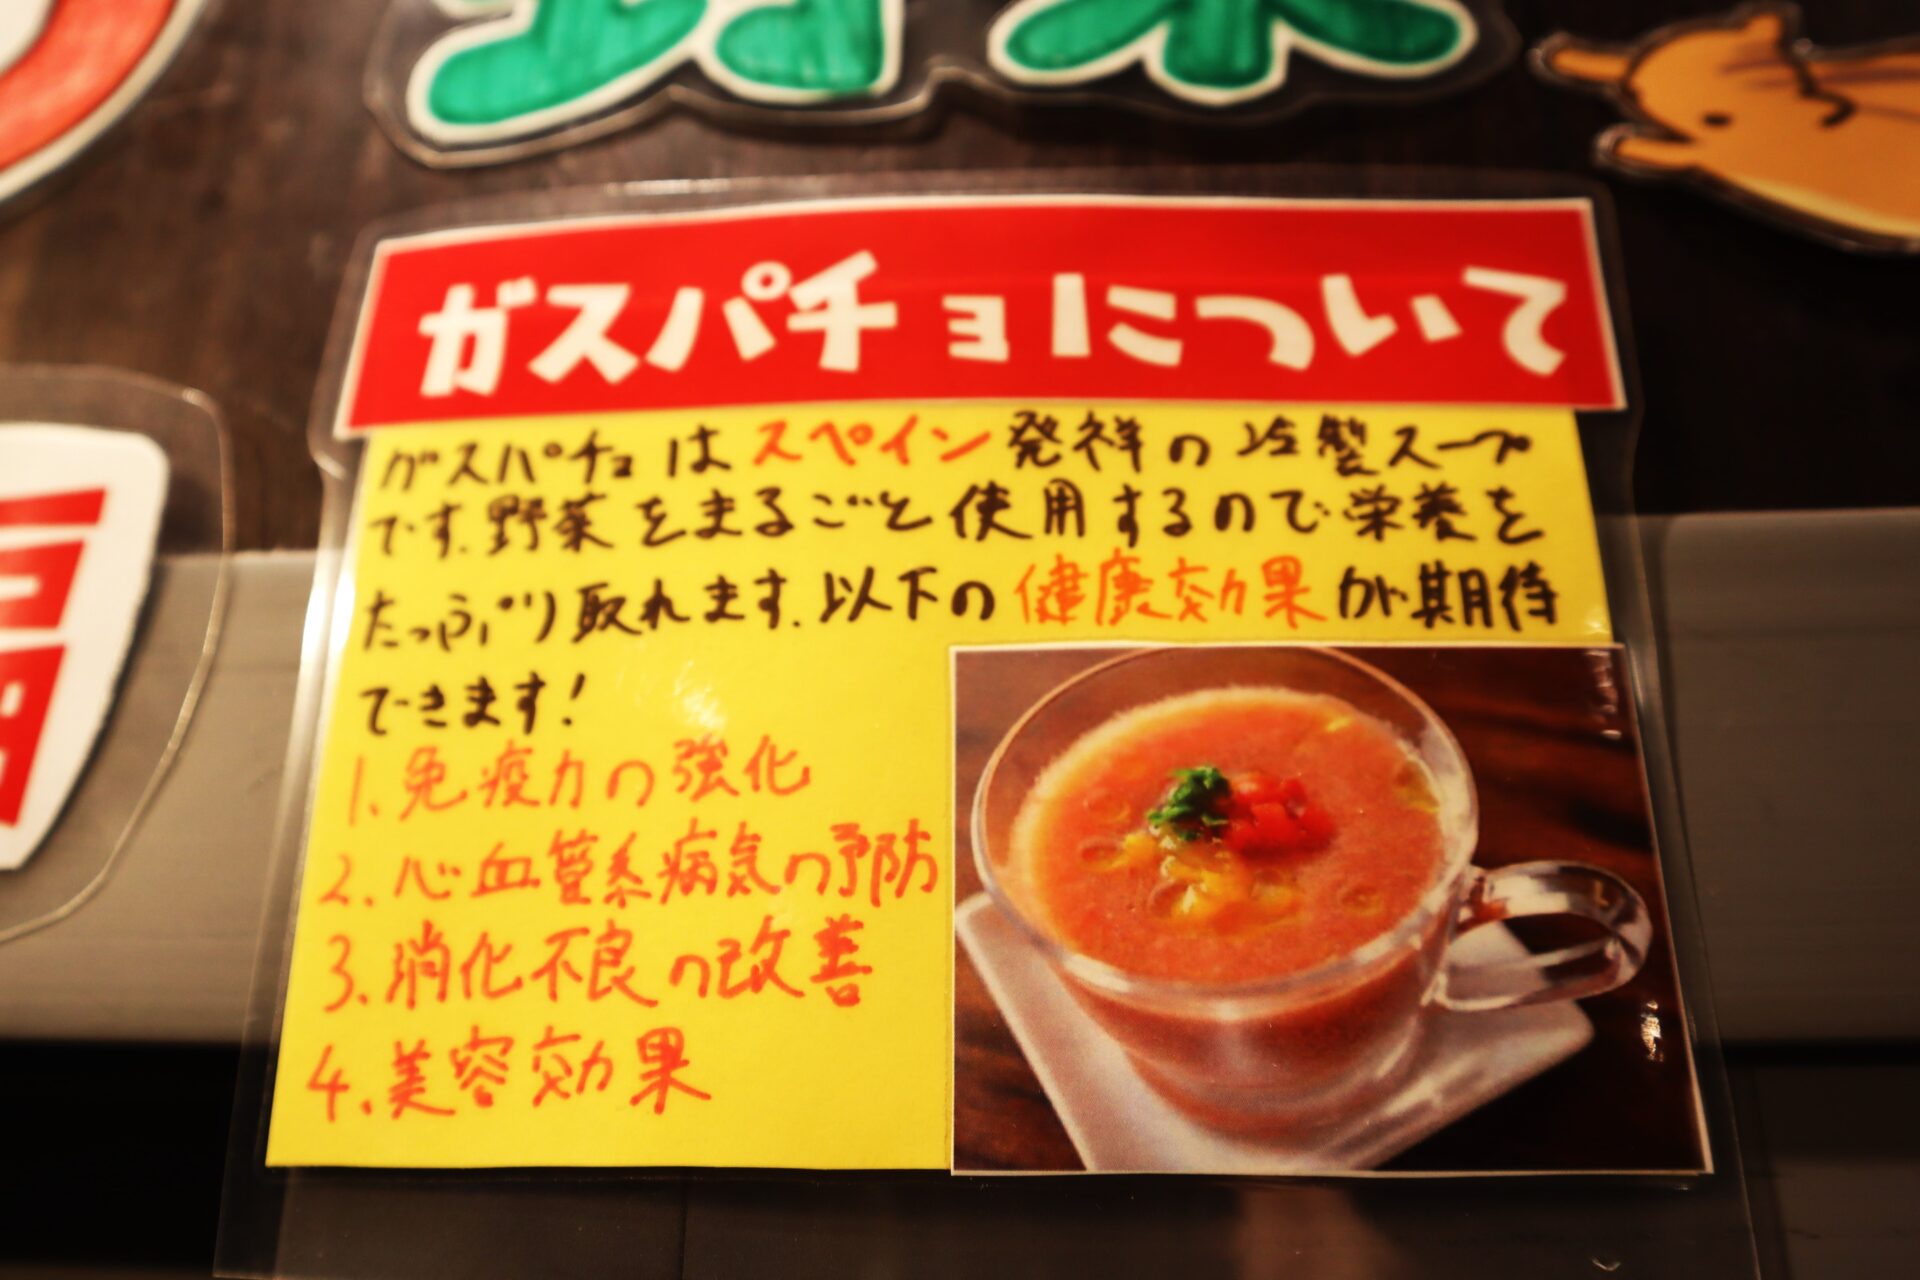 ガスパチョについて
ガスパチョはスペイン発祥の冷製スープ
です.野菜をまるごと使用するので栄養を
たっぷり取れます.以下の健康効果が期待
できます!
1.免疫力の強化
2.心血管系病気の予防
3.消化不良の改善
4.美容効果